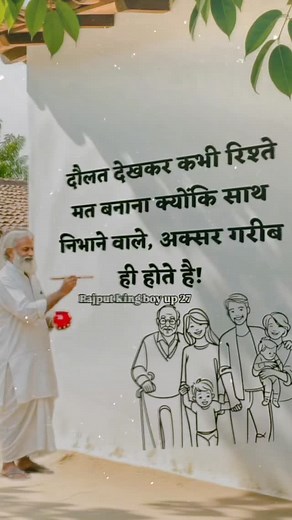 दौलत देखकर कभी रिश्ते
मत बनाना क्योंकि साथ
निभाने वाले, अक्सर गरीब
ही होते है!
Rajput king boy up 27